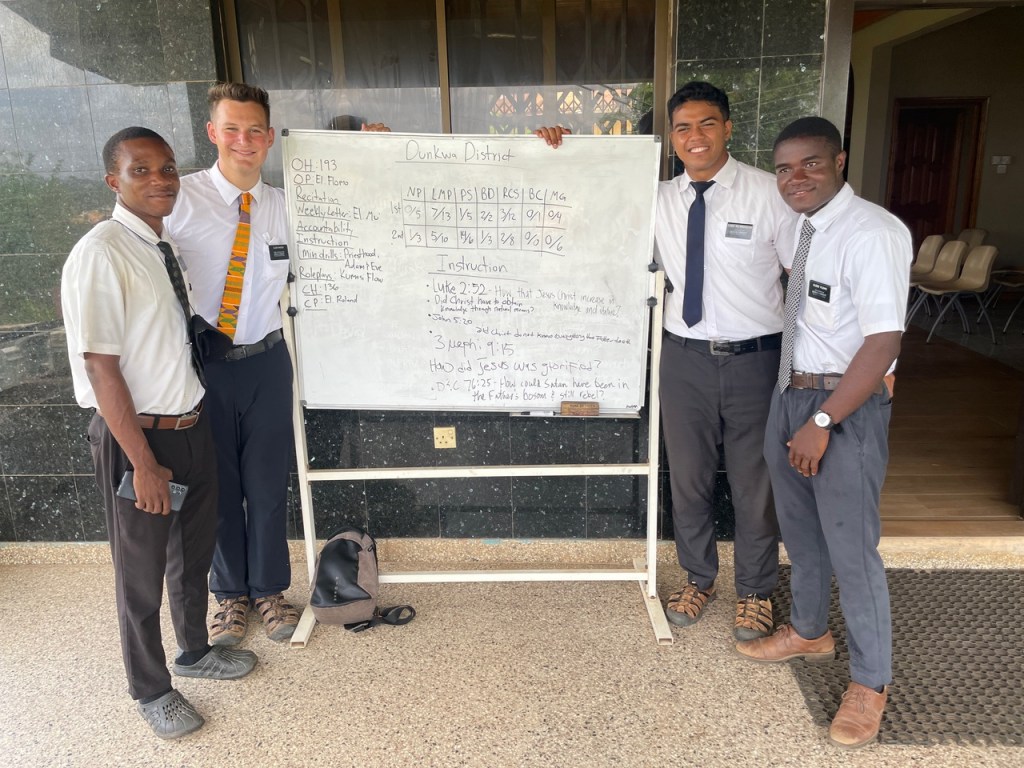 Dunkwa District
OH: 193
OP: El. Floro
Recitation
Weekly Letter: El. Mu
Accountability
Instruction
Min drills: Priesthood,
Adam & Eve
Roleplay: Kumasi Flow
CH: 136
CP: El. Roland
NP LMP PS BD RCS BC MG
1st /5 7/13 1/5 2/2 3/12 0/1 0/4
2nd 1/3 5/10 /6 1/3 2/8 0/0 0/6
Instruction
Luke 2:52 - How that Jesus Christ increase in
knowledge and
• Did Christ have to obtain
knowledge through natural means?
John 5:20
3 Nephi 9:15
How did Jesus was glorified?
• D&C 76:25 - How could Satan have been in
the Father's bosom & still rebel?